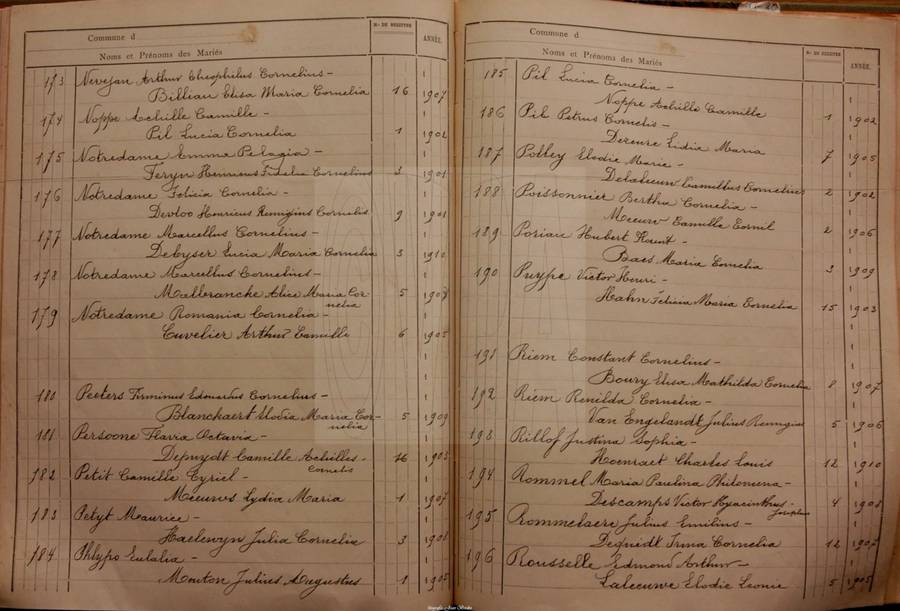 Commune d
Nº DE REGISTRE
ANNÉE.
Noms et Prénoms des Mariés
173 Nevejan Arthur Theophilus Cornelius –
Billiau Elisa Maria Cornelia 16 1907
174 Noppe Achille Camille –
Pil Lucia Cornelia 1 1902
175 Notredame Emma Pelagia –
Feryn Henricus Fidelis Cornelius 3 1901
176 Notredame Felicia Cornelia –
Devloo Henricus Remigius Cornelis 9 1901
177 Notredame Marcellus Cornelius –
Debyser Lucia Maria Cornelia 3 1910
178 Notredame Marcellus Cornelius –
Malbrancke Alice Maria Cor-
nelia 5 1907
179 Notredame Romania Cornelia –
Cuvelier Arthur Camille 6 1905
180 Peeters Firminus Edouardus Cornelius –
Blanckaert Elodia Maria Cor-
nelia 5 1909
181 Persoone Flavia Octavia –
Depuydt Camille Achilles –
Cornelis 16 1903
182 Petit Camille Cyriel –
Meeurvs Lydia Maria 1 1907
183 Petyt Maurice –
Haelewyn Julia Cornelia 3 1908
184 Phlypo Eulalia –
Mouton Julius Augustus 1 1905
Commune d
Nº DE REGISTRE
ANNÉE.
Noms et Prénoms des Mariés
185 Pil Lucia Cornelia –
Noppe Achille Camille 1 1902
186 Pil Petrus Cornelis –
Dereure Lidia Maria 7 1905
187 Polley Elodie Marie –
Delaleeuw Camillus Cornelius 2 1902
188 Poissonnier Bertha Cornelia –
Meeurv Camille Cornil 2 1906
189 Poriau Hubert –
Baes Maria Cornelia 3 1909
190 Puype Victor Henri –
Hahn Felicia Maria Cornelia 15 1903
191 Riem Constant Cornelius –
Boury Elisa Mathilda Cornelia 8 1907
192 Riem Renilda Cornelia –
Van Engelandt Julius Remigius 5 1906
193 Rillof Justina Sophia –
Hoenraet Charles Louis 12 1910
194 Rommel Maria Paulina Philomena –
Descamps Victor Hyacinthus –
Josephus 4 1908
195 Rommelaere Julius Emilius –
Dequidt Irma Cornelia 12 1907
196 Rousselle Edmond Arthur –
Laleeuwe Elodie Leonie 5 1905